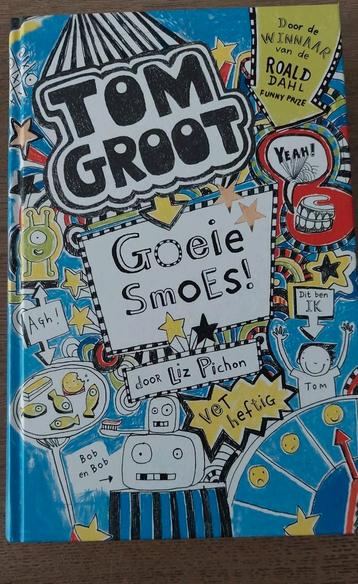 Door de
WINNAAR
van de
ROALD
DAHL
FUNNY PRIZE
TOM
GROOT
YEAH!
GOEIE
SMOES!
Agh!
Dit ben
IK
door Liz Pichon
Tom
VET
heftig
Bob
en Bob